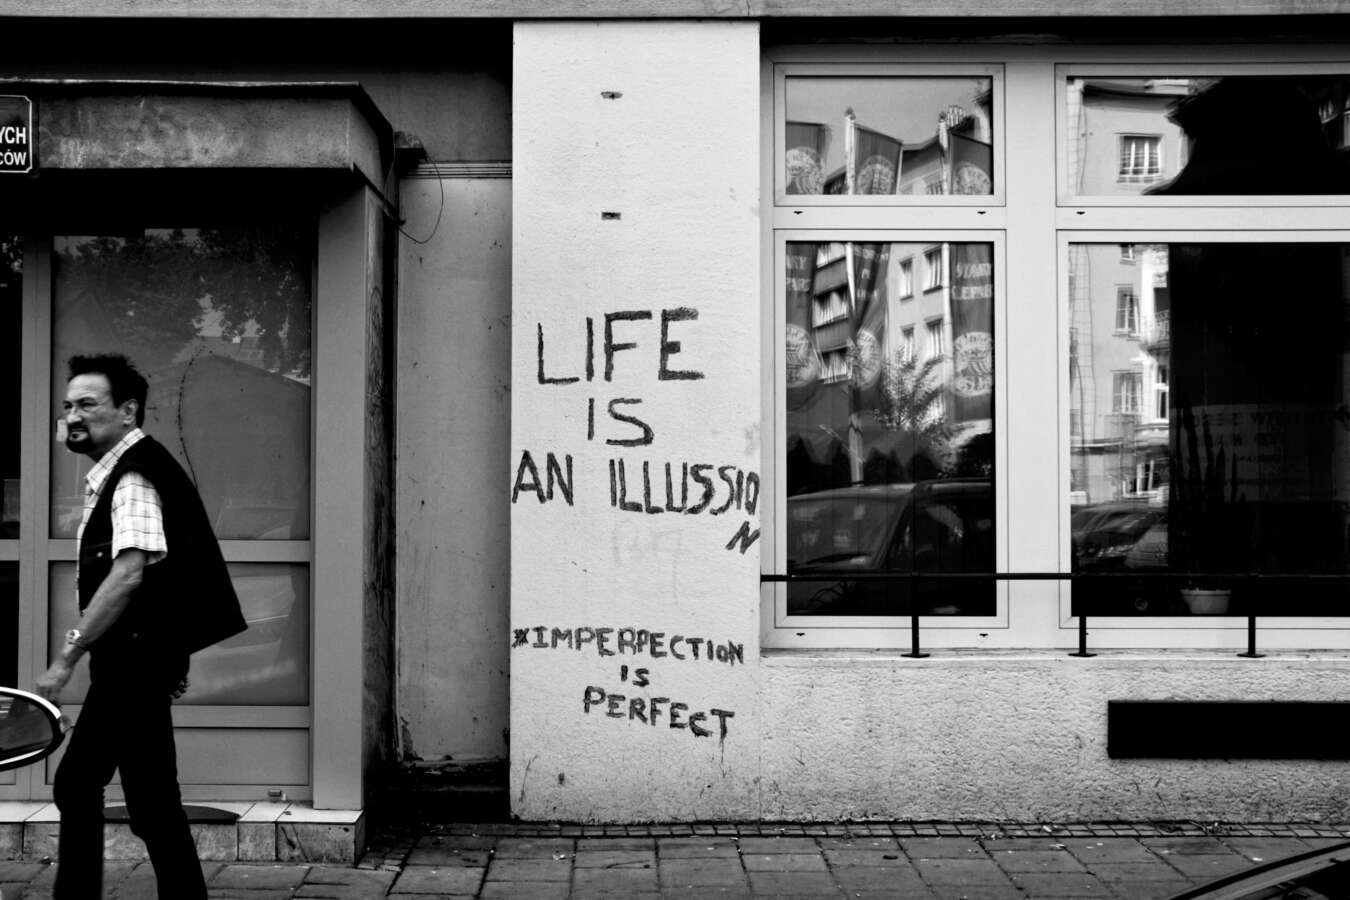 YCH
CÓW
LIFE
IS
AN ILLUSSIO
N
*IMPERPECTION
IS
PERFECT